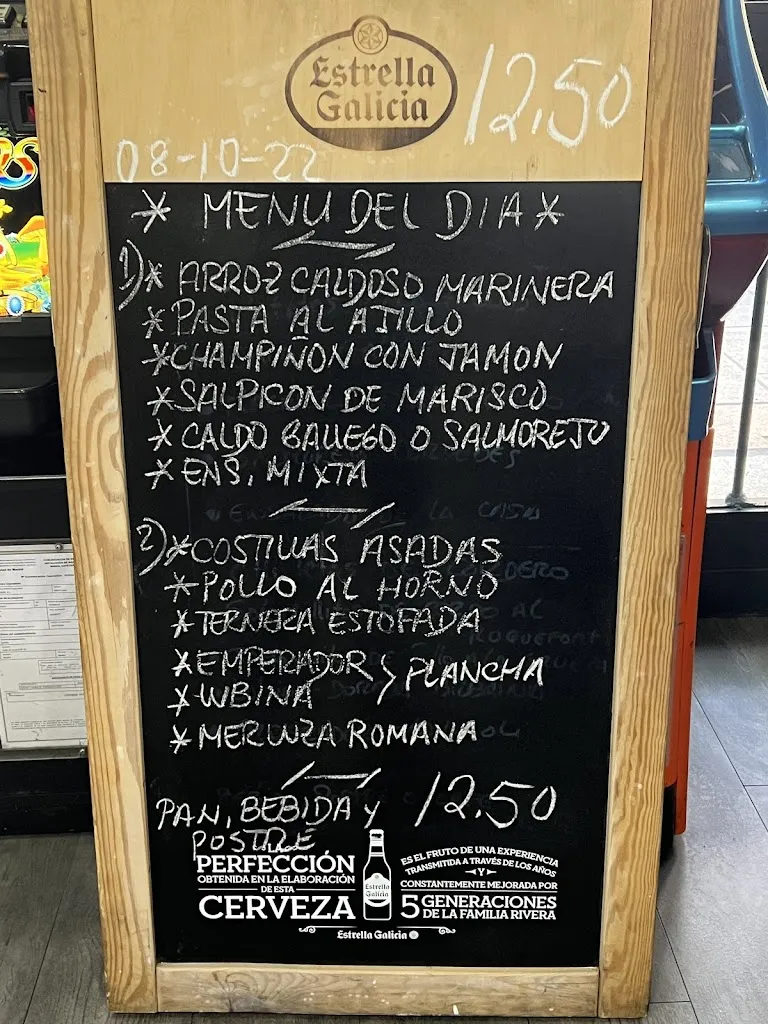 Estrella
Galicia
12,50
08-10-22
* MENU DEL DIA *
1) * ARROZ CALDOSO MARINERA
* PASTA AL AJILLO
* CHAMPIÑON CON JAMON
* SALPICON DE MARISCO
* CALDO GALLEGO O SALMOREJO
* ENS. MIXTA
2) * COSTILLAS ASADAS
* POLLO AL HORNO
* TERNERA ESTOFADA
* EMPERADOR } PLANCHA
* LUBINA
* MERLUZA ROMANA
PAN, BEBIDA Y 12.50
POSTRE
PERFECCIÓN
OBTENIDA EN LA ELABORACIÓN
DE ESTA
CERVEZA
Estrella
Galicia
ES EL FRUTO DE UNA EXPERIENCIA
TRANSMITIDA A TRAVÉS DE LOS AÑOS
Y
CONSTANTEMENTE MEJORADA POR
5 GENERACIONES
DE LA FAMILIA RIVERA
Estrella Galicia